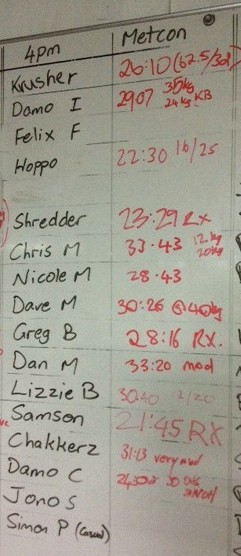 4pm Metcon
Krusher 26:10 (62.5/32)
Damo I 2907 35kg 24kg KB
Felix F
Hoppo 22:30 16/25
Shredder 23:29 Rx
Chris M 33.43 12kg 20kg
Nicole M 28.43
Dave M 30:26 @40kg
Greg B 28:16 Rx.
Dan M 33:20 mod
Lizzie B 30:40 12/20
Samson 21:45 RX
Chakkerz 31:13 very mod
Damo C
Jono S
Simon P (casual)